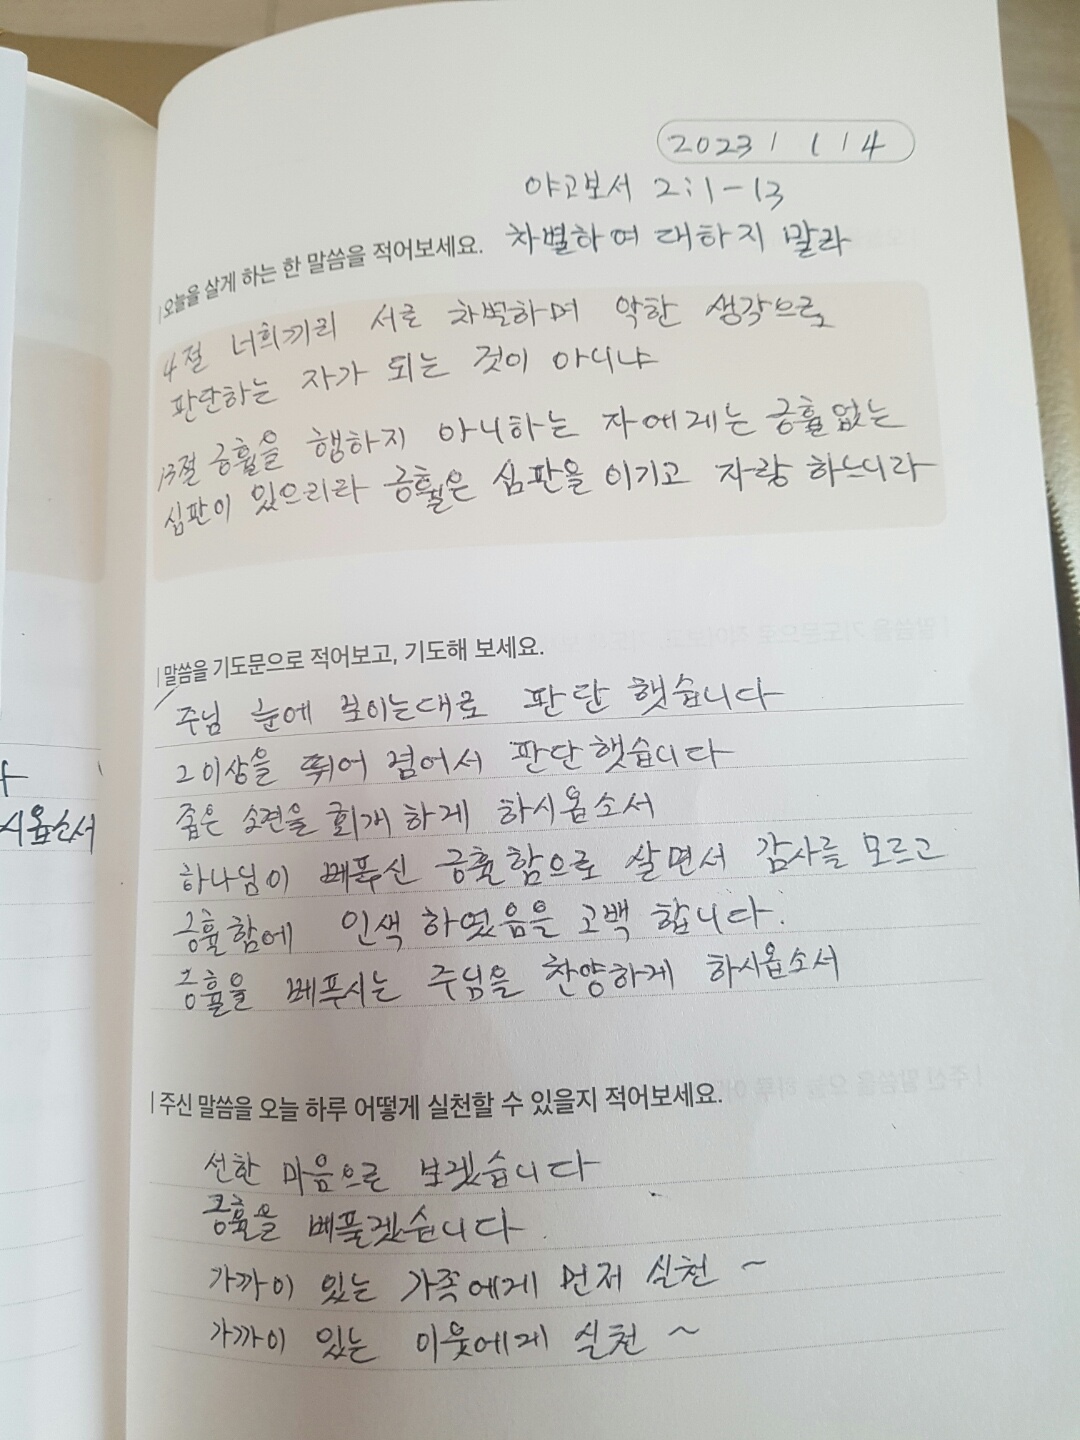 2023 / 1 / 4
야고보서 2:1-13
차별하여 대하지 말라
오늘을 살게 하는 한 말씀을 적어보세요.
4절 너희끼리 서로 차별하며 악한 생각으로
판단하는 자가 되는 것이 아니냐
13절 긍휼을 행하지 아니하는 자에게는 긍휼없는
심판이 있으리라 긍휼은 심판을 이기고 자랑 하느니라
말씀을 기도문으로 적어보고, 기도해 보세요.
주님 눈에 보이는대로 판단 햇습니다
그이상을 뛰어 넘어서 판단햇습니다
좁은 소견을 회개 하게 하시옵소서
하나님이 베푸신 긍휼함으로 살면서 감사를 모르고
긍휼함에 인색 하였음을 고백 합니다.
긍휼을 베푸시는 주님을 찬양하게 하시옵소서
주신 말씀을 오늘 하루 어떻게 실천할 수 있을지 적어보세요.
선한 마음으로 보겠습니다
긍휼을 베풀겠습니다
가까이 있는 가족에게 먼저 실천 ~
가까이 있는 이웃에게 실천 ~
시옵소서